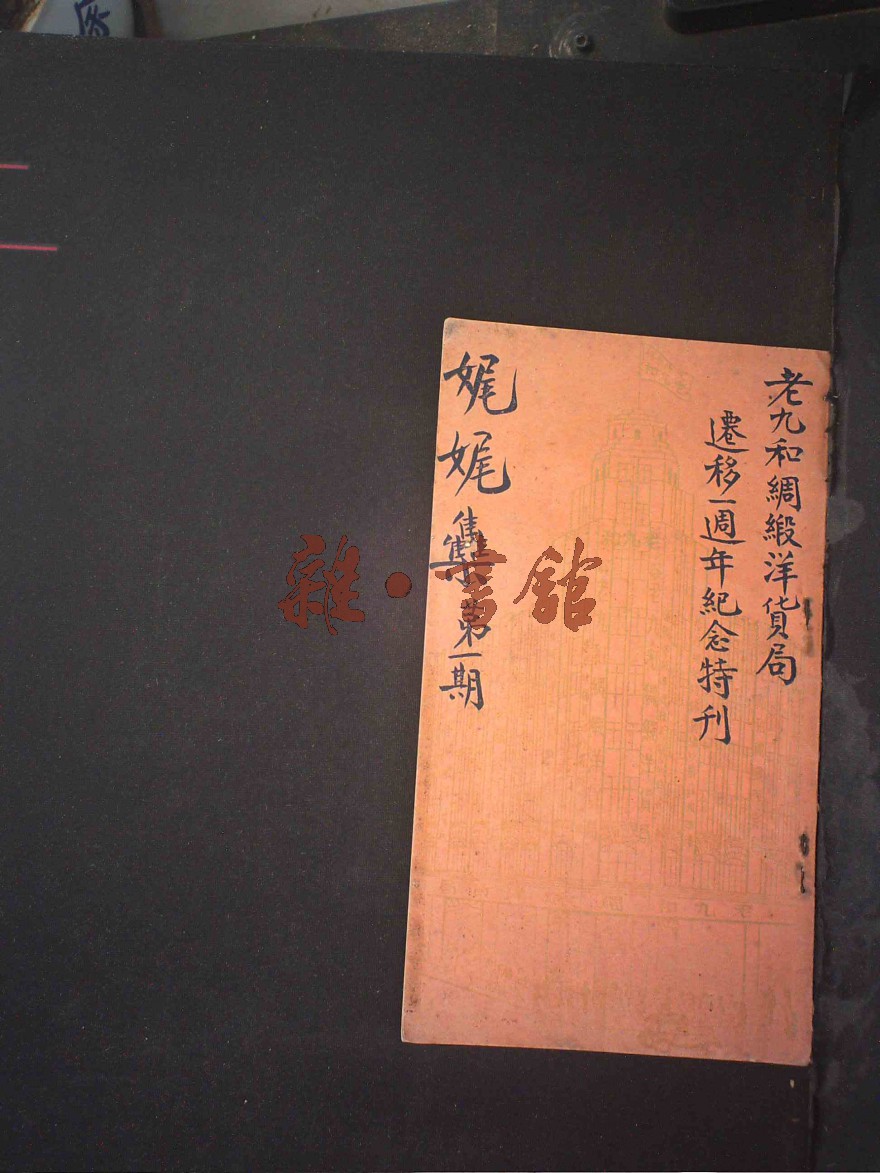 老九和綢緞洋貨局
遷移一週年紀念特刊
娓娓集第一期
雜·書館
老九和